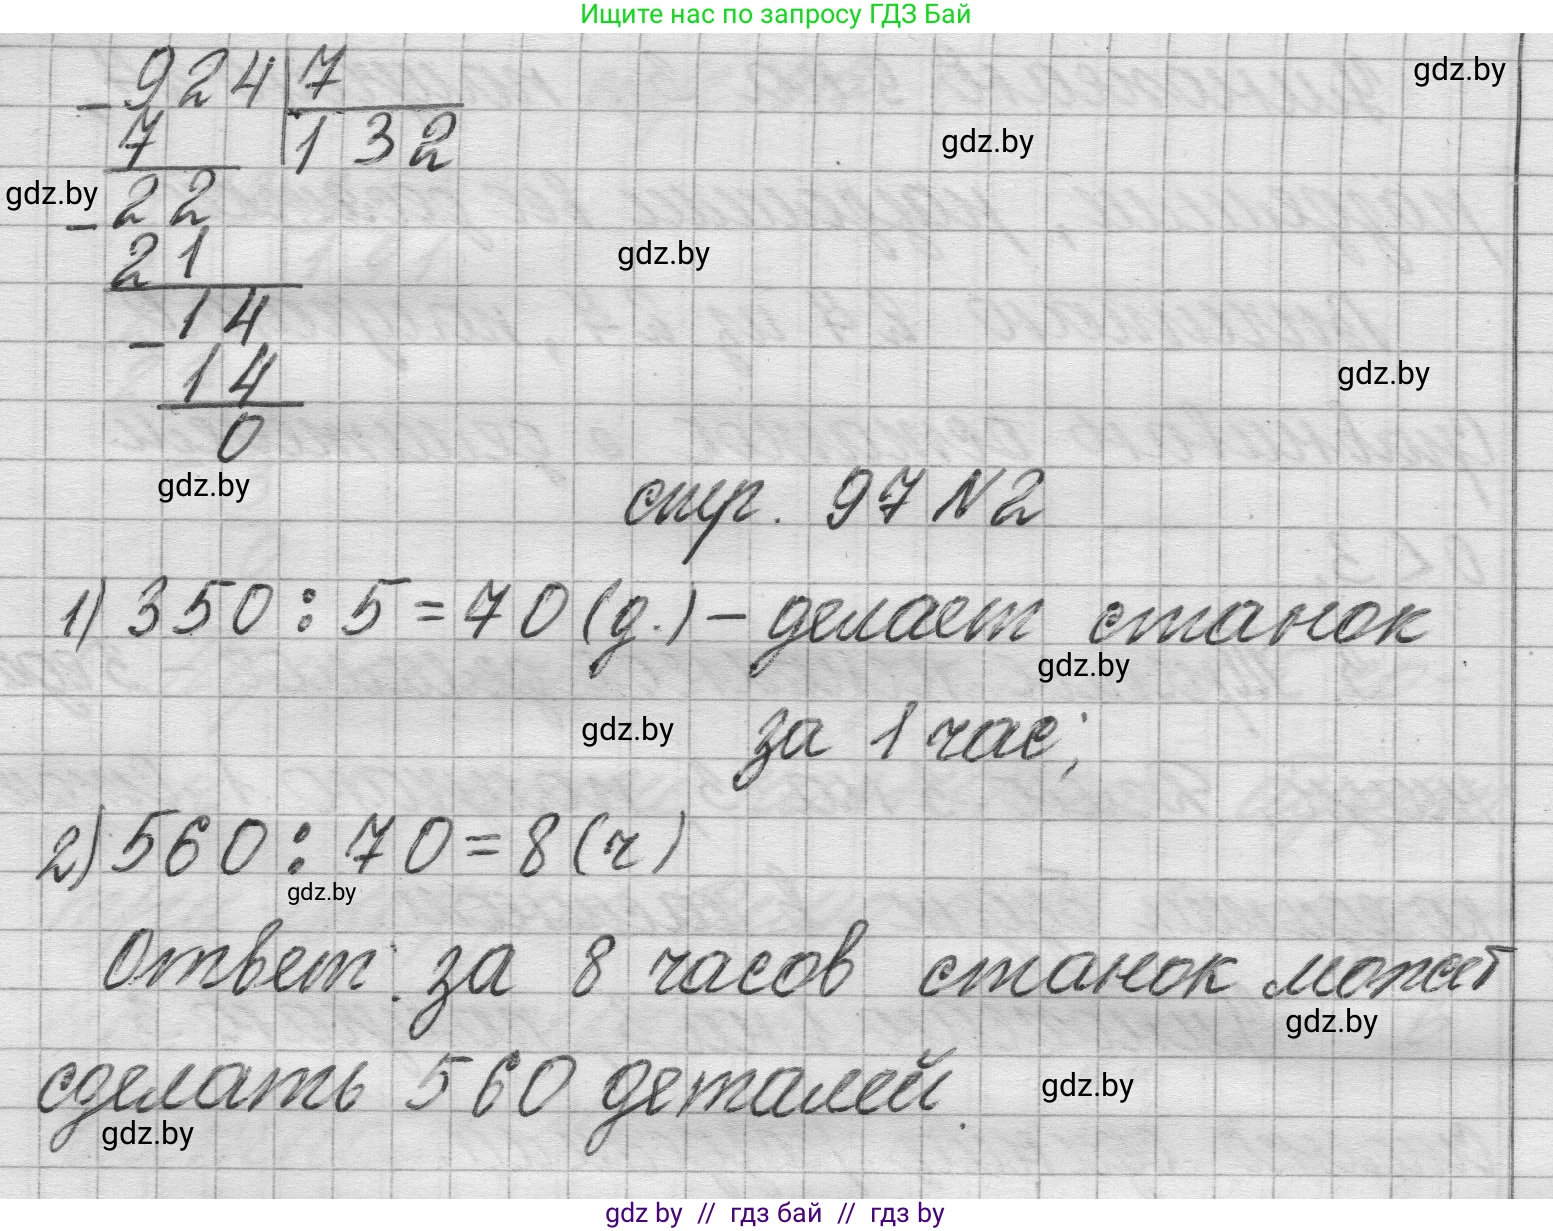 Ищите нас по запросу ГДЗ Бай
924 7
gdz.by
7 132
gdz.by
gdz.by
22
21
gdz.by
14
14
gdz.by
0
gdz.by
стр. 97 N2
1) 350 : 5 = 70 (д.) – делает станок
gdz.by
за 1 час;
gdz.by
2) 560 : 70 = 8 (ч)
gdz.by
Ответ: за 8 часов станок может
gdz.by
сделать 560 деталей.
gdz.by
gdz.by
gdz by // гдз бай // гдз by